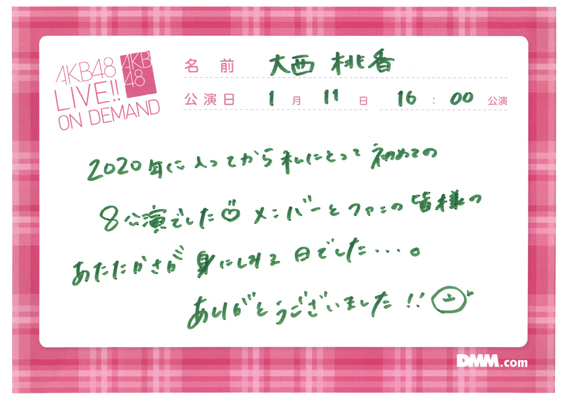 AKB48
LIVE!!
ON DEMAND
AKB
48
名前 大西 桃香
公演日 1月 11日 16:00 公演
2020年に入ってから私にとって初めての
8公演でした♡ メンバーとファンの皆様の
あたたかさが身にしみる日でした...。
ありがとうございました!!
DMM.com